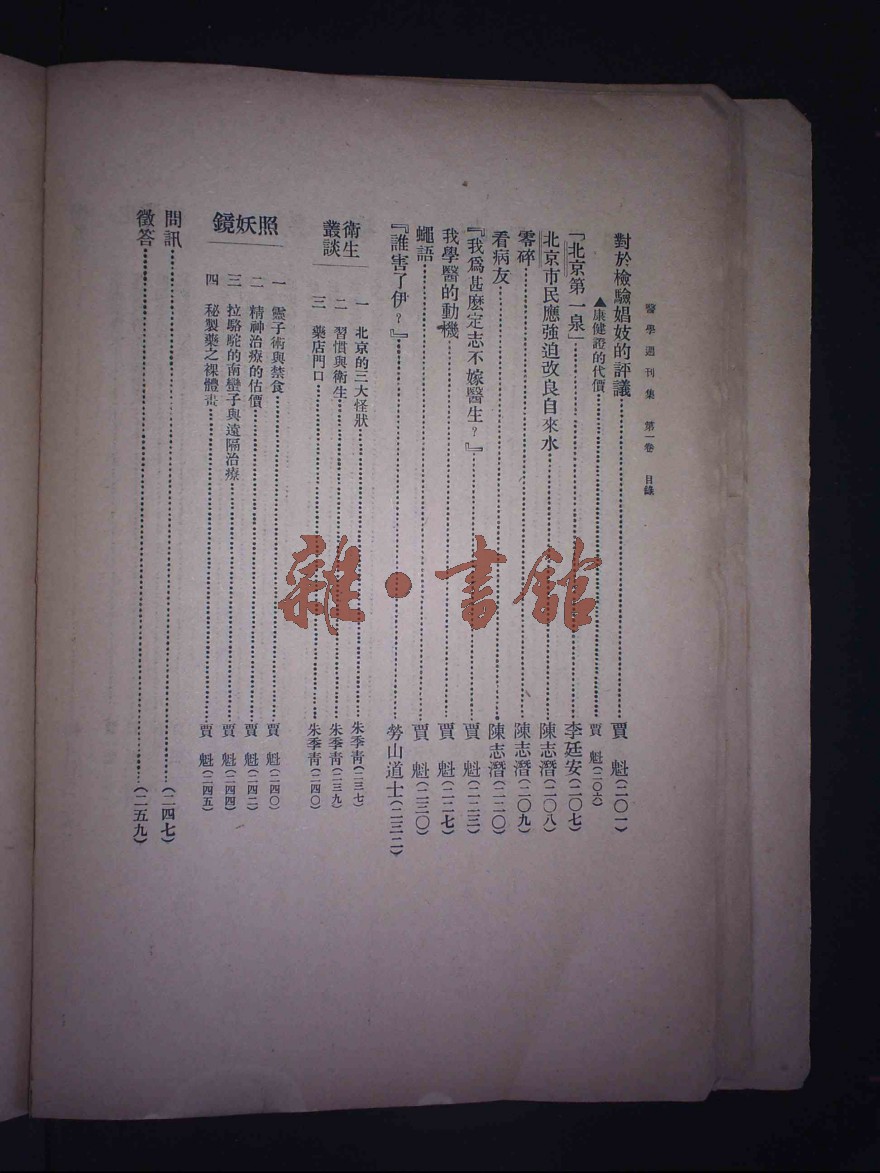 醫學週刊集 第一卷 目錄
對於檢驗娼妓的評議……賈 魁(二〇一)
▲康健證的代價……賈 魁(二〇六)
「北京第一泉」……李廷安(二〇七)
北京市民應強迫改良自來水……陳志潛(二〇八)
零碎……陳志潛(二〇九)
看病友……陳志潛(二二〇)
『我爲甚麼定志不嫁醫生?』……賈 魁(二二三)
我學醫的動機……賈 魁(二二七)
蠅語……賈 魁(二三〇)
『誰害了伊?』……勞山道士(二三二)
衛生叢談
一 北京的三大怪狀……朱季青(二三七)
二 習慣與衛生……朱季青(二三九)
三 藥店門口……朱季青(二四〇)
照妖鏡
一 靈子術與禁食……賈 魁(二四〇)
二 精神治療的估價……賈 魁(二四二)
三 拉駱駝的南蠻子與遠隔治療……賈 魁(二四四)
四 秘製藥之裸體畫……賈 魁(二四五)
問訊……(二四七)
徵答……(二五九)
雜·書館